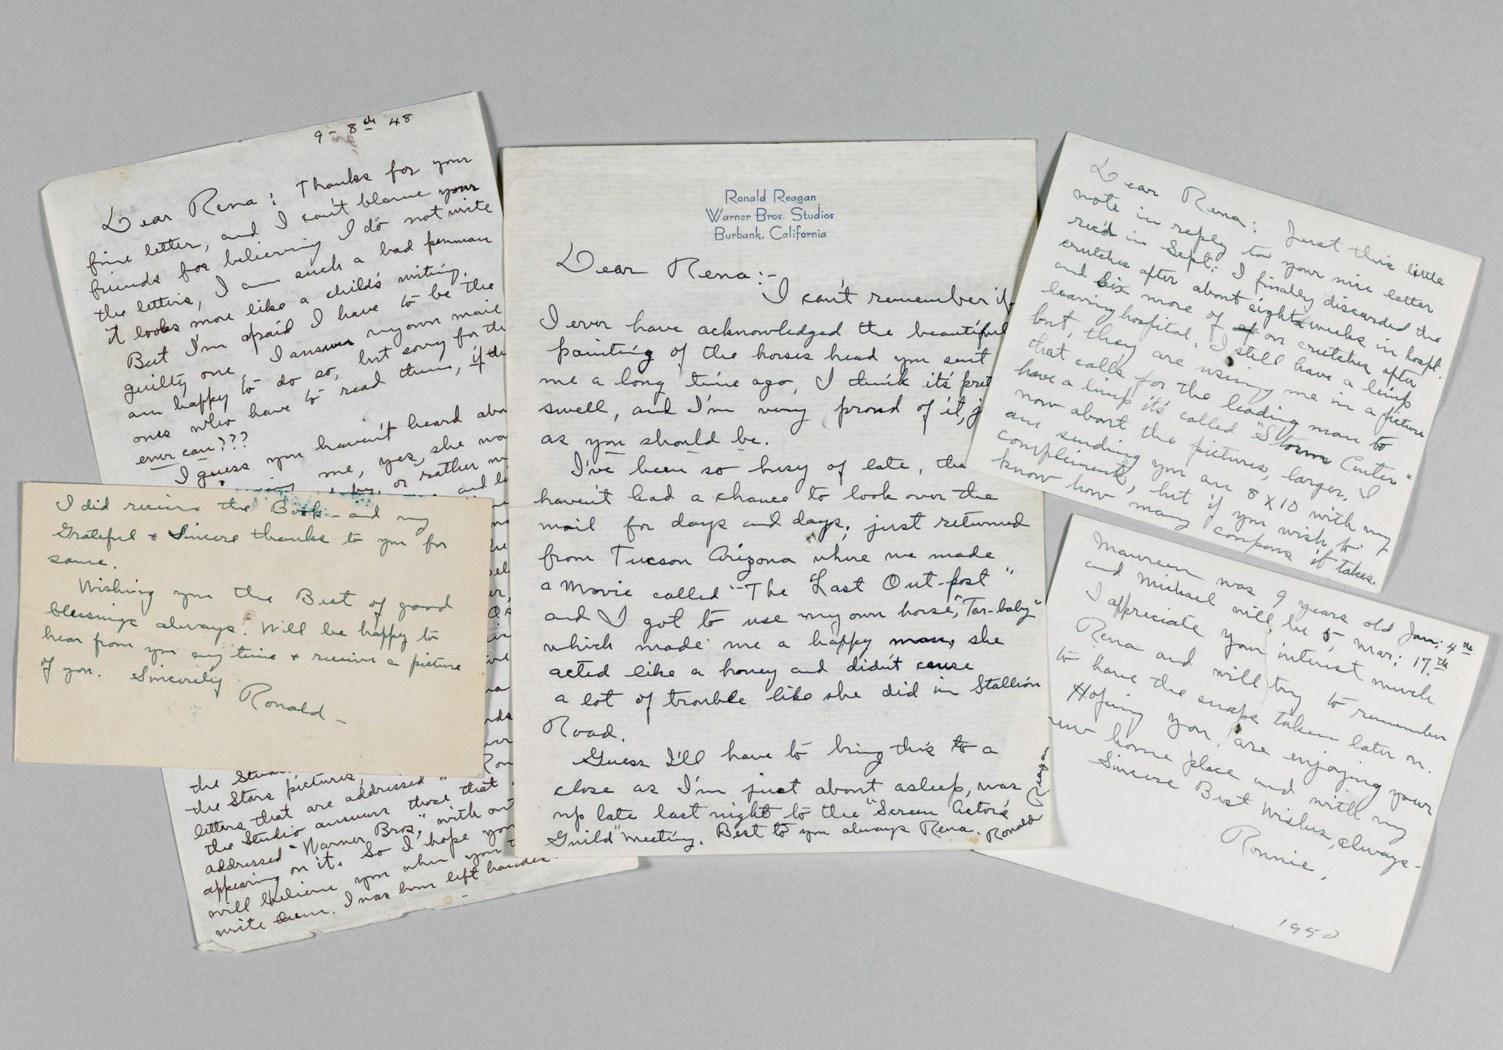 9 - 8th 48
Dear Rena: Thanks for your
fine letter, and I can't blame your
friends for believing I do not write
the letters, I am such a bad penman
it looks more like a child's writing.
But I'm afraid I have to be the
guilty one, I answer my own mail
am happy to do so, but sorry for the
ones who have to read them, if the
ever can???
I guess you haven't heard abou
me, yes, she wa
or rather
the Stars pictures,
letters that are addressed
the Studio answers those that
addressed "Warner Bros." with out
appearing on it. So I hope you
will believe you when you
write them. I was born left handed.
I did receive the Book - and my
Grateful & Sincere thanks to you for
same.
Wishing you the Best of good
blessings always. Will be happy to
hear from you any time & receive a picture
of you. Sincerely
Ronald -
Ronald Reagan
Warner Bros. Studios
Burbank, California
Dear Rena:-
I can't remember if
I ever have acknowledged the beautiful
painting of the horses head you sent
me a long time ago, I think it's pret
swell, and I'm very proud of it, j
as you should be.
I've been so busy of late, the
haven't had a chance to look over the
mail for days and days, just returned
from Tucson Arizona where we made
a Movie called "The Last Out-post"
and I got to use my own horse, "Tar-baby"
which made me a happy man, she
acted like a honey and didn't cause
a lot of trouble like she did in Stallion
Road.
Guess I'll have to bring this to a
close as I'm just about asleep, was
up late last night to the "Screen Actor's
Guild" meeting. Best to you always Rena. Ronald
Reagan
Dear Rena: Just this little
note in reply to your nice letter
rec'd in Sept; I finally discarded the
crutches after about eight weeks in hospt.
and six more of on crutches after
leaving hospital. I still have a limp
but, they are using me in a picture
that calls for the leading man to
have a limp it's called "Storm Center"
now about the pictures, larger, I
am sending you an 8 X 10 with my
compliments, but if you wish to
know how many coupons it takes
Maureen was 9 years old Jan; 4th
and Michael will be 5, Mar; 17th
I appreciate your interest much
Rena and will try to remember
to have the snaps taken later on.
Hoping you are enjoying your
new home place and with my
Sincere Best Wishes, always-
Ronnie.
1950